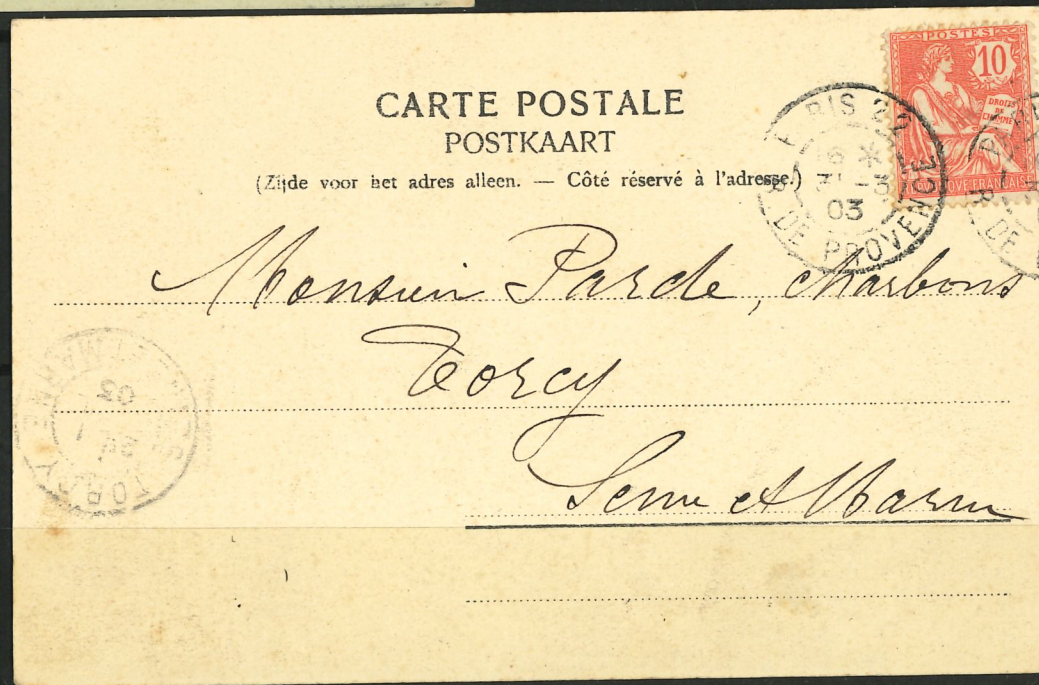 CARTE POSTALE
POSTKAART
(Zijde voor het adres alleen. — Côté réservé à l'adresse.)
POSTES
10
DROITS DE L'HOMME
FRANÇAIS
PARIS 22
R. DE PROVENCE
03
Monsieur Parde, charbons
Torcy
Seine et Marne
TORCY
S. ET MARNE
03